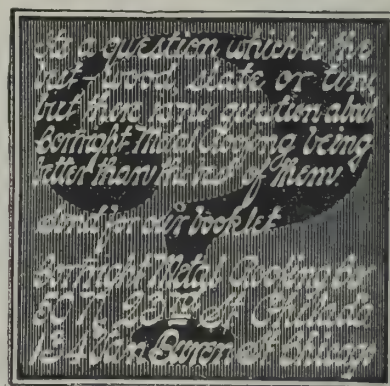 Its a question which is the
best – wood, slate or tin,
but there is no question about
Cortright Metal Roofing being
better than the rest of them.
Send for our booklet
Cortright Metal Roofing Co.
50 N. 23 St Philada
134 Van Buren St Chicago